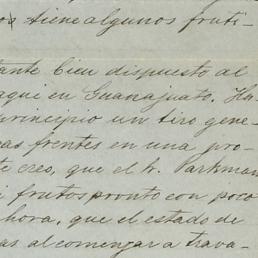 tiene algunos fruti-
ante bien dispuesto al
aqui en Guanajuato. Ha-
principio un tiro gene-
as frentes en una pro-
te eres, que el Sr. Parkman
i frutos pronto con poco
hora, que el estado de
as al comenzar a trava-